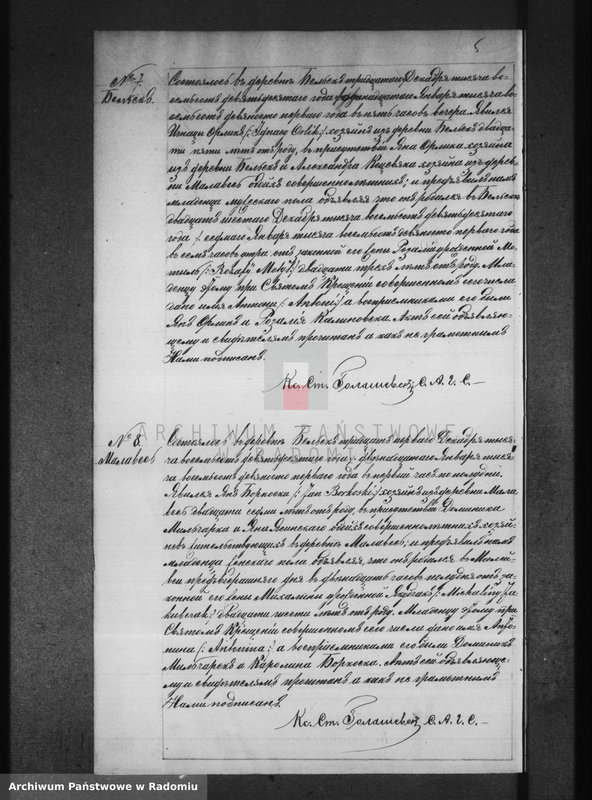 5
№ 7
Бельскъ
Состоялось въ деревнѣ Бельскѣ тридцатаго Декабря тысяча во-
семьсотъ девятидесятаго года /: одиннадцатаго Января тысяча во-
семьсотъ девяносто перваго года въ пять часовъ вечера. Явился
Игнаци Орликъ /: Ignacy Orlik :/ хозяинъ изъ деревни Бельскъ двадца-
ти пяти лѣтъ отъ роду, въ присутствіи Яна Орлика хозяина
изъ деревни Бельскъ и Александра хозяина изъ дерев-
ни Малавесь обоихъ совершеннолѣтнихъ; и предъявилъ намъ
младенца мужескаго пола объявляя что онъ родился въ Бельскѣ
двадцать шестаго Декабря тысяча восемьсотъ девятьдесятаго
года /: седьмаго Января тысяча восемьсотъ девяносто перваго года
въ семь часовъ утра отъ законной его жены Розаліи урожденной Мо-
тыль /: Rozalji Motyl :/ двадцати трехъ лѣтъ отъ роду. Мла-
денцу этому при Святомъ Крещеніи совершенномъ сего числа
дано имя Антони /: Antoni :/ а воспріемниками его были
Янъ Орликъ и Розалія Калиновска. Актъ сей объявляю-
щему и свидѣтелямъ прочитанъ а какъ не грамотнымъ
Нами подписанъ.
Кс. Ст. С. А. Г. С.
ARCHIWUM PAŃSTWOWE
W RADOMIU
№ 8.
Малавесь
Состоялось въ деревнѣ Бельскѣ тридцать перваго Декабря тыся-
ча восемьсотъ девятидесятаго года /: двѣнадцатаго Января тыся-
ча восемьсотъ девяносто перваго года въ первый часъ по полудни.
Явился Янъ Борковски /: Jan Borkoski :/ хозяинъ изъ деревни Мала-
весь двадцати седми лѣтъ отъ роду, въ присутствіи Доминика
Мльчарка и Яна обоихъ совершеннолѣтнихъ хозяй-
новъ жительствующихъ въ деревнѣ Малавесь; и предъявилъ намъ
младенца женскаго пола объявляя, что онъ родился въ Малой-
вси дня въ двѣнадцать часовъ полудня отъ за-
конной его жены Михалины урожденной Якубякъ /: Michaliny Ja-
kubczak :/ двадцати шести лѣтъ отъ роду. Младенцу этому при
Святомъ Крещеніи совершенномъ сего числа дано имя Анто-
нина /: Antonina :/ а воспріемниками его были Доминикъ
Мльчарекъ и Каролина Борковска. Актъ сей объявляюще-
му и свидѣтелямъ прочитанъ а какъ не грамотнымъ
Нами подписанъ.
Кс. Ст. С. А. Г. С.
Archiwum Państwowe w Radomiu